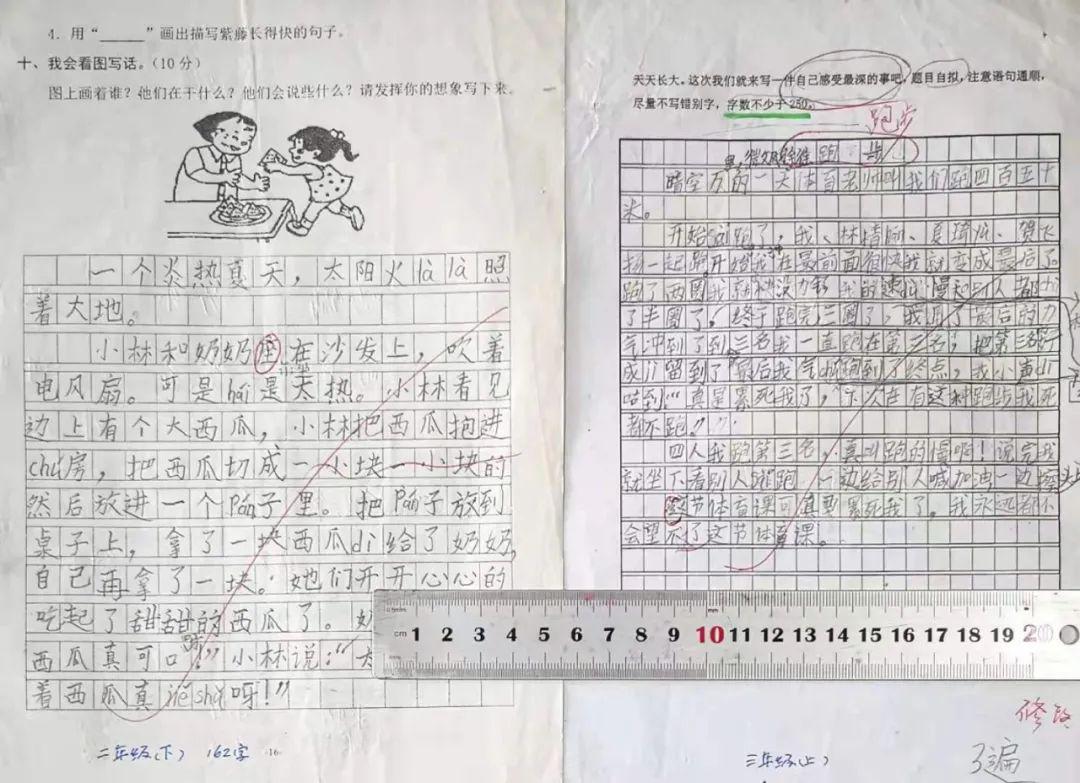 4. 用“______”画出描写紫藤长得快的句子。
十、我会看图写话。(10分)
图上画着谁？他们在干什么？他们会说些什么？请发挥你的想象写下来。
一个炎热夏天，太阳火là là照
着大地。
小林和奶奶坐在沙发上，吹着
电风扇。可是hái是太热。小林看见
边上有个大西瓜，小林把西瓜抱进
chú房，把西瓜切成一小块一小块的
然后放进一个Pán子里。把Pán子放到
桌子上，拿了一块西瓜dì给了奶奶,
自己再拿了一块。她们开开心心的
吃起了甜甜的西瓜了。
西瓜真可口！”小林说：“
着西瓜真 shū呀！”
二年级(下) 162字
16
天天长大。这次我们就来写一件自己感受最深的事吧，题目自拟，注意语句通顺，
尽量不写错别字，字数不少于250。
跑步
跑步
的一天体育老师叫我们跑四百五十
米。
开始跑了，我、林
一起跑开始我在最前面很快我就变成最后了。
跑了两圈我就 没力
了半圈了，终于跑完三圈了，我用了最后的力
气冲到了 三名我一直跑在第三名，把第三名
留到了最后我 跑到了终点，我小声
咕到“真是累死我了，下次在有这种跑步我死
都不跑。”
四人我跑第三名，真叫跑的慢啊！说完我
就坐下看别人 跑 一边给别人喊加油一边擦
这节体育课可真 累死我了。我永远都不
会 了这节体育课。
0.5mm
mm
cm 1 2 3 4 5 6 7 8 9 10 11 12 13 14 15 16 17 18 19 20
三年级(上)
修改
了遍